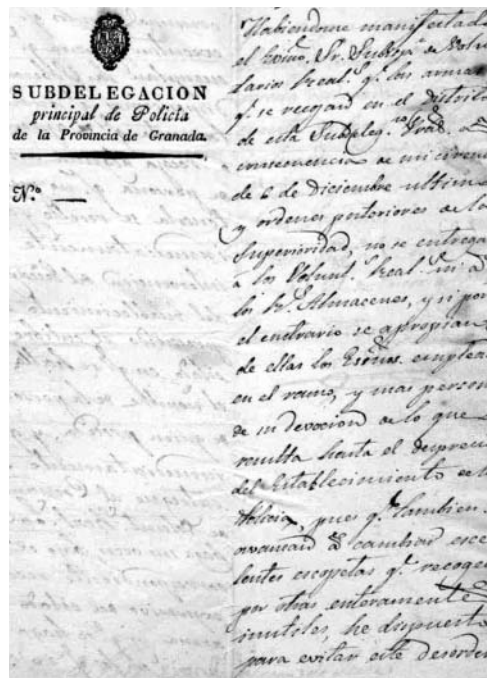 SUBDELEGACION
principal de Policia
de la Provincia de Granada.
N.º
Habiendome manifestado
el Exmo. Sr. Subinsp.r de Volun
tarios Real.s q.e las armas
q.e se recojan en el distrito
de esta Subdeleg.on Pral. a
consecuencia de mi circul
de 6 de Diciembre ultimo
y ordenes posteriores de la
Superioridad, no se entregan
a los Volunt.s Real.s ni a
los R.s Almacenes, y si por
el contrario se apropian
de ellas los Esnos. emplea
en el ramo, y mas person
de su devocion de lo que
resulta hasta el desprec
del Establecimiento de
Policia, pues q.e tambien
avanzan a cambiar esce
lentes escopetas q.e recoge
por otras enteramente
inutiles, he dispuesto
para evitar este desorden